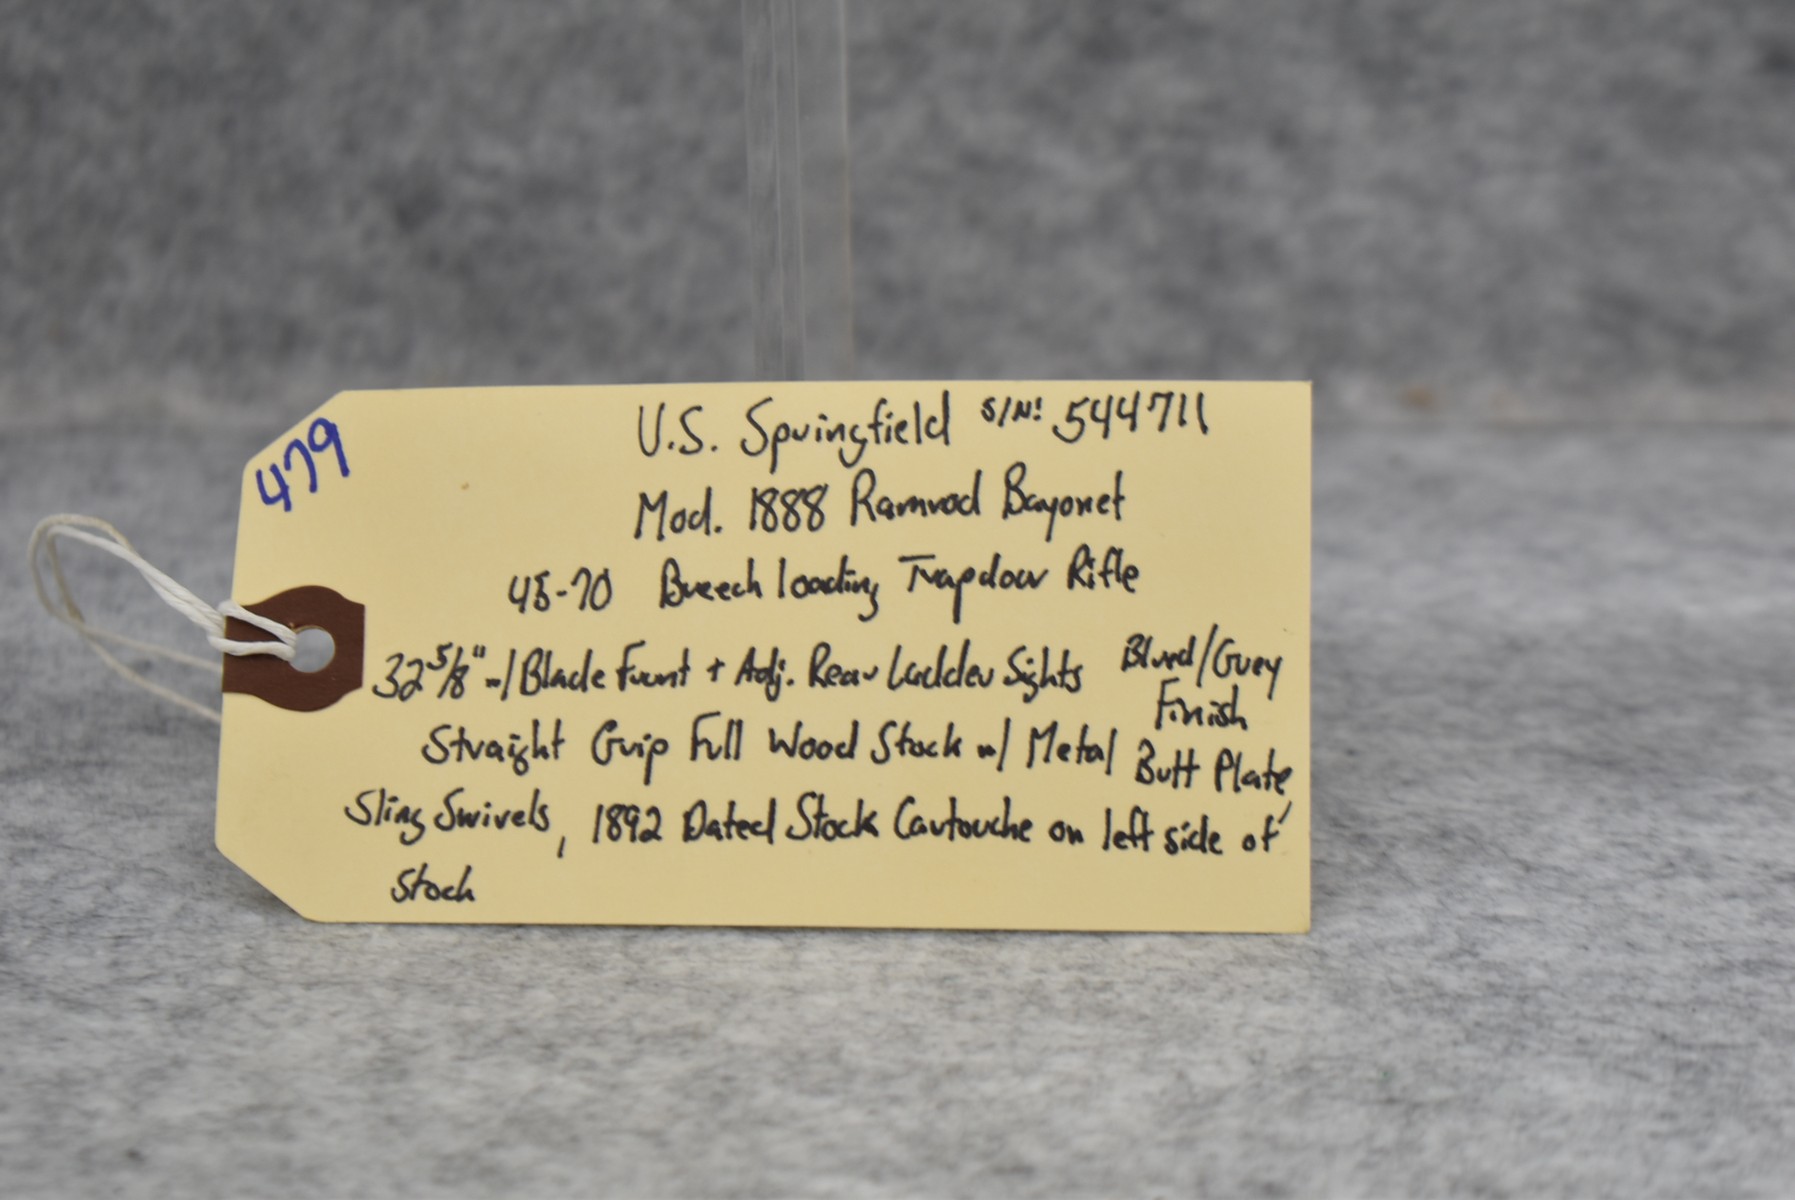 479
U.S. Springfield S/N: 544711
Mod. 1888 Ramrod Bayonet
45-70 Breech loading Trapdoor Rifle
32 5/8" w/ Blade Front + Adj. Rear Ladder Sights Blued/Grey Finish
Straight Grip Full Wood Stock w/ Metal Butt Plate,
Sling Swivels, 1892 Dated Stock Cartouche on left side of
Stock